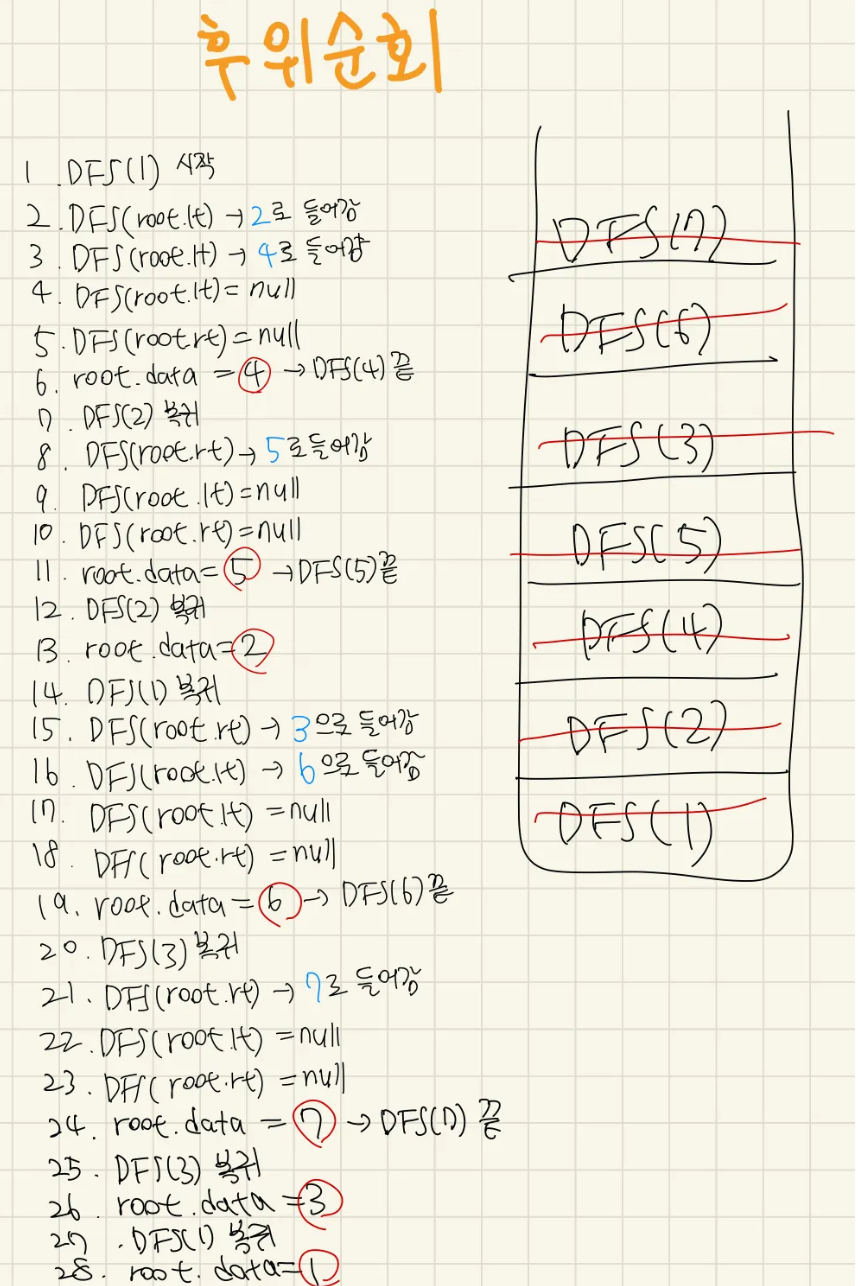 후위순회
1. DFS(1) 시작
2. DFS(root.lt) → 2로 들어감
3. DFS(root.lt) → 4로 들어감
4. DFS(root.lt) = null
5. DFS(root.rt) = null
6. root.data = 4 → DFS(4) 끝
7. DFS(2) 복귀
8. DFS(root.rt) → 5로 들어감
9. DFS(root.lt) = null
10. DFS(root.rt) = null
11. root.data = 5 → DFS(5) 끝
12. DFS(2) 복귀
13. root.data = 2
14. DFS(1) 복귀
15. DFS(root.rt) → 3으로 들어감
16. DFS(root.lt) → 6으로 들어감
17. DFS(root.lt) = null
18. DFS(root.rt) = null
19. root.data = 6 → DFS(6) 끝
20. DFS(3) 복귀
21. DFS(root.rt) → 7로 들어감
22. DFS(root.lt) = null
23. DFS(root.rt) = null
24. root.data = 7 → DFS(7) 끝
25. DFS(3) 복귀
26. root.data = 3
27. DFS(1) 복귀
28. root.data = 1
DFS(7)
DFS(6)
DFS(3)
DFS(5)
DFS(4)
DFS(2)
DFS(1)